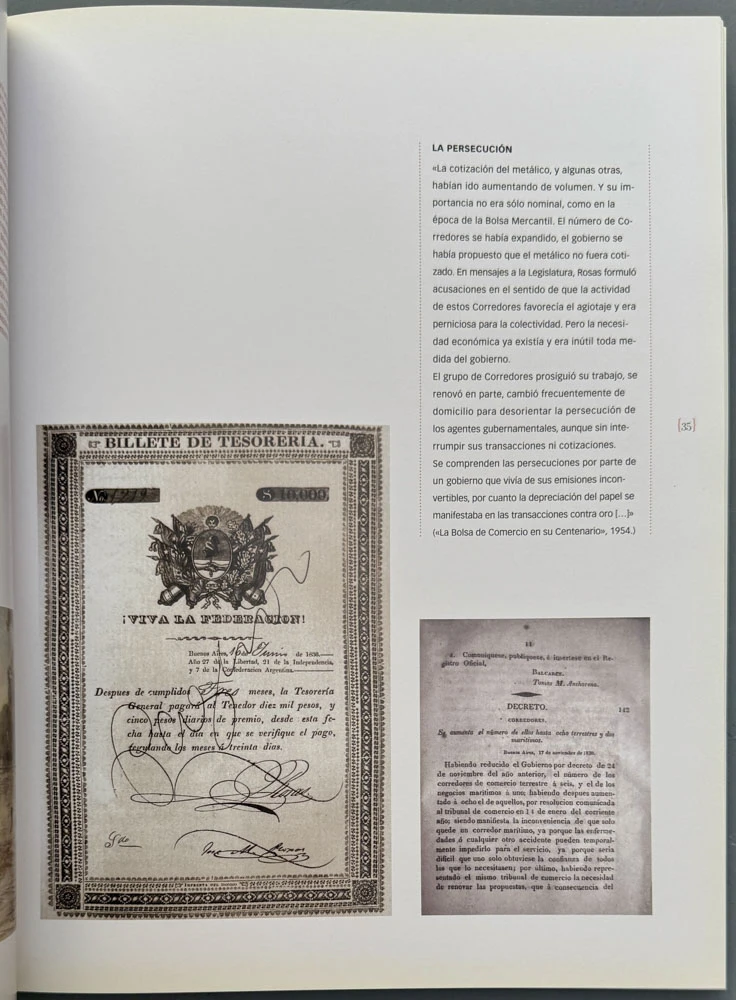 LA PERSECUCIÓN
«La cotización del metálico, y algunas otras,
habían ido aumentando de volumen. Y su im-
portancia no era sólo nominal, como en la
época de la Bolsa Mercantil. El número de Co-
rredores se había expandido, el gobierno se
había propuesto que el metálico no fuera coti-
zado. En mensajes a la Legislatura, Rosas formuló
acusaciones en el sentido de que la actividad
de estos Corredores favorecía el agiotaje y era
perniciosa para la colectividad. Pero la necesi-
dad económica ya existía y era inútil toda me-
dida del gobierno.
El grupo de Corredores prosiguió su trabajo, se
renovó en parte, cambió frecuentemente de
domicilio para desorientar la persecución de
los agentes gubernamentales, aunque sin inte-
rrumpir sus transacciones ni cotizaciones.
Se comprenden las persecuciones por parte de
un gobierno que vivía de sus emisiones incon-
vertibles, por cuanto la depreciación del papel se
manifestaba en las transacciones contra oro [...]»
(«La Bolsa de Comercio en su Centenario», 1954.)
{35}
BILLETE DE TESORERIA.
No.
$ 10,000
¡VIVA LA FEDERACION!
Buenos Aires, 16 de Junio de 1836.
Año 27 de la Libertad, 21 de la Independencia,
y 7 de la Confederacion Argentina.
Despues de cumplidos Tres meses, la Tesorería
General pagará al Tenedor diez mil pesos, y
cinco pesos diarios de premio, desde esta fe-
cha hasta el dia en que se verifique el pago,
regulando los meses á treinta dias.
11
2. Comuníquese, publíquese, é insértese en el Re-
gistro Oficial.
BALCARCE.
Tomas M. Anchorena.
DECRETO.
142
CORREDORES.
Se aumenta el número de ellos hasta ocho terrestres y dos
marítimos.
Buenos Aires, 17 de noviembre de 1830.
Habiendo reducido el Gobierno por decreto de 24
de noviembre del año anterior, el número de los
corredores de comercio terrestre á seis, y el de los
negocios marítimos á uno; habiendo despues aumen-
tado á ocho el de aquellos, por resolucion comunicada
al tribunal de comercio en 14 de enero del corriente
año; siendo manifiesta la inconveniencia de que solo
quede un corredor marítimo, ya porque las enferme-
dades ó cualquier otro accidente pueden temporal-
mente impedirlo para el servicio, ya porque seria
dificil que uno solo obtuviese la confianza de todos
los que lo necesitasen; por último, habiendo repre-
sentado el mismo tribunal de comercio la necesidad
de renovar las propuestas, que á consecuencia del